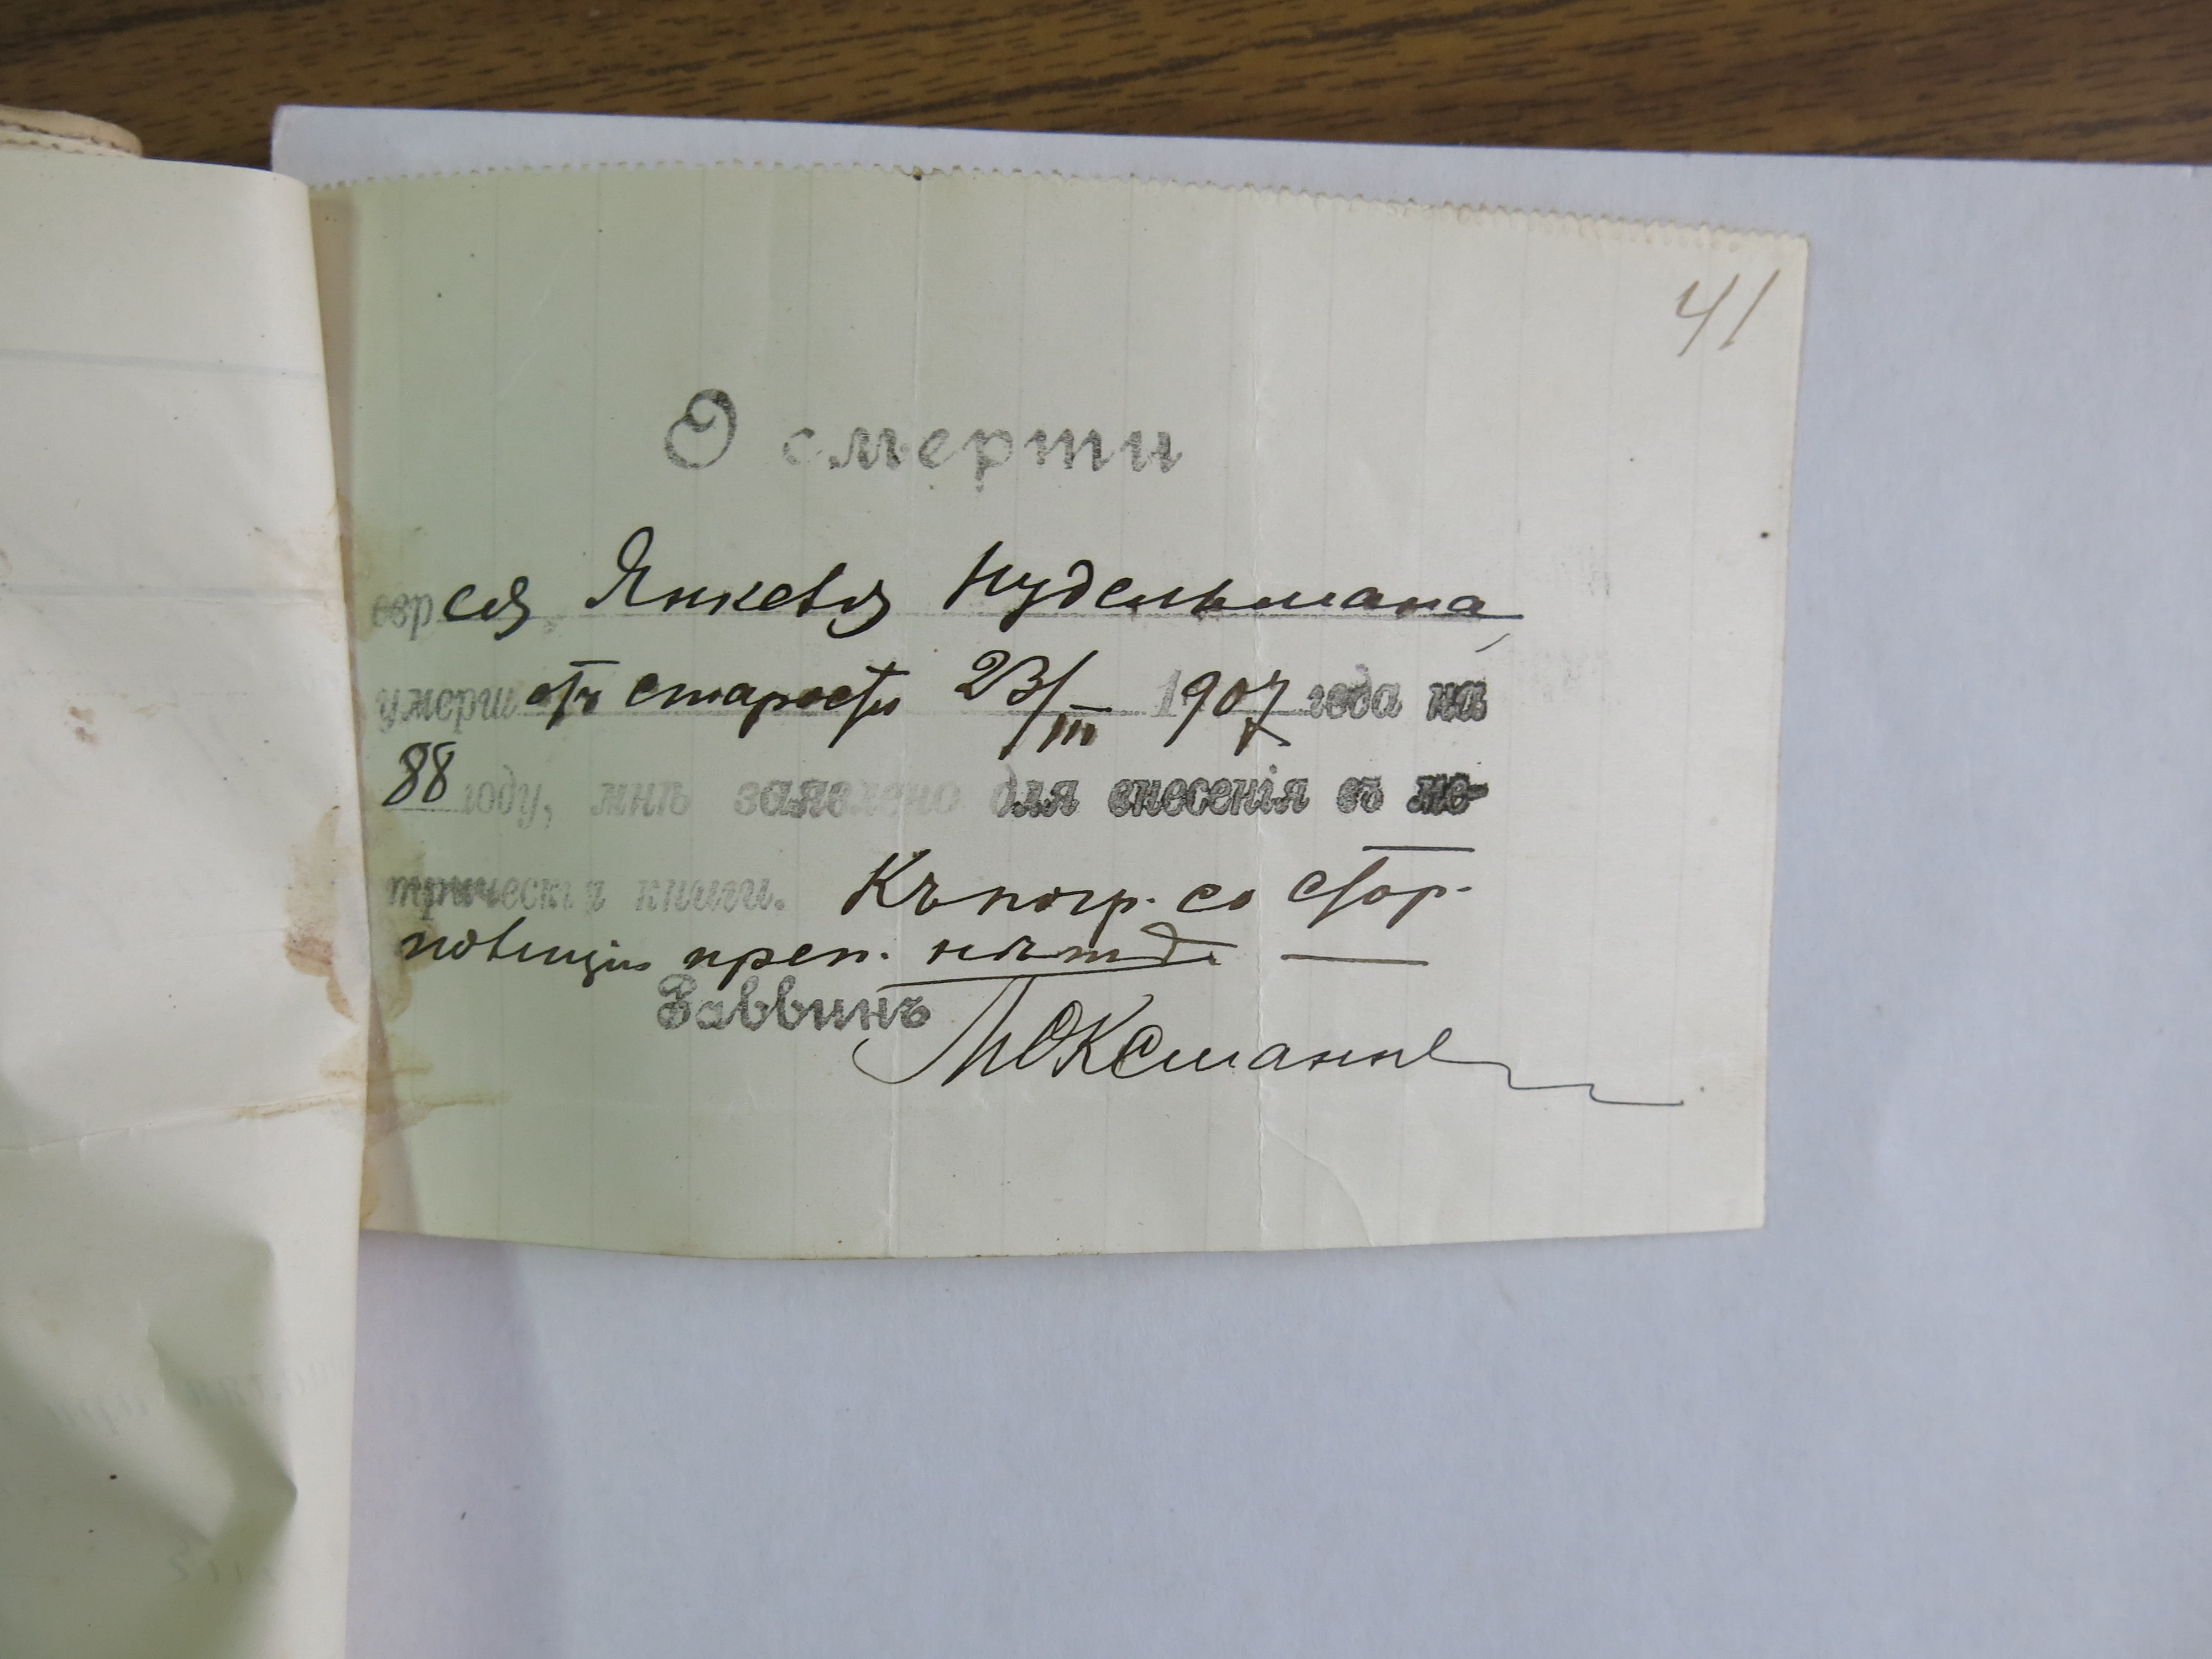 41
О смерти
еврея Янкеля Нудельмана,
умерш отъ старости 23/III 1907 года на
88 году, мнѣ заявлено для внесенія въ ме-
трическія книги. Къ погр. со стор.
полиціи преп. нѣтъ
Раввинъ МОКсманъ